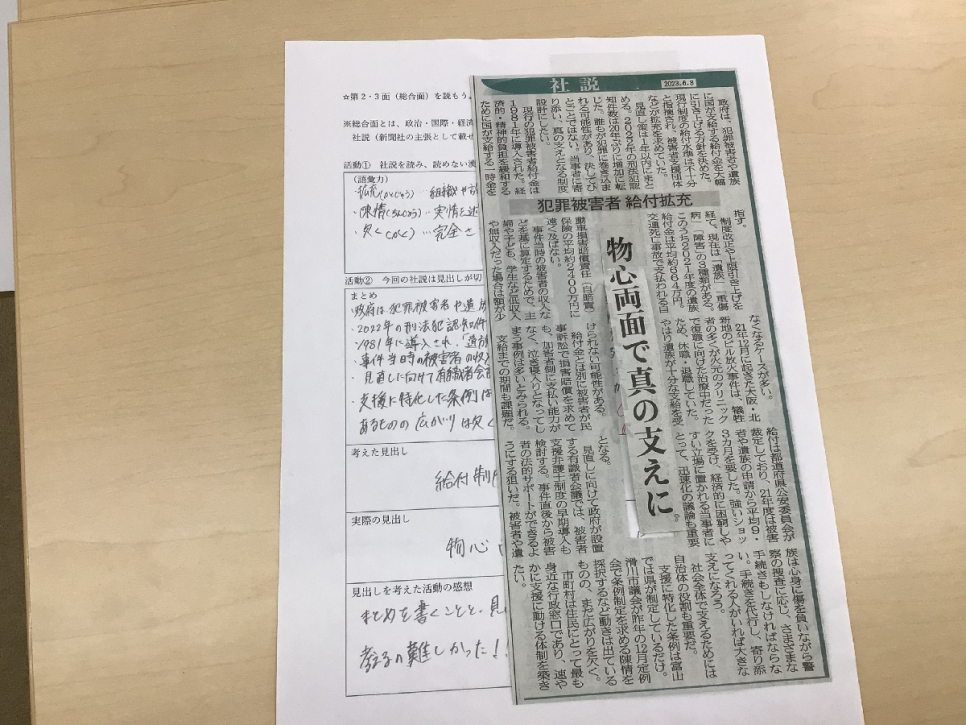 ☆第2・3面（総合面）を読もう。
※総合面とは、政治・国際・経済
社説（新聞社の主張として載せ
活動① 社説を読み、読めない漢
（語彙力）
拡充(かくじゅう)
・陳情(ちんじょう)…実情を述
・欠く(かく)…完全さ
活動② 今回の社説は見出しが切
まとめ
・政府は、犯罪被害者や遺族
・2022年の刑法犯認知件
・1981年に導入され、「遺族
事件当時の被害者の収入
・見直しに向けて有識者会議
・支援に特化した条例は
あるものの広がりは欠く
考えた見出し
給付制度
実際の見出し
物心
見出しを考えた活動の感想
まとめを書くことと、見
考えるの難しかった！！
社説
2023.6.8
政府は、犯罪被害者や遺族
に国が支給する給付金を大幅
に引き上げる方針を決めた。
現行制度の給付水準は不十分
と指摘され、被害者支援団体
などが拡充を求めていた。
見直し策は1年以内にまと
める。2022年の刑法犯認
知件数は20年ぶりに増加に転
じた。誰もが犯罪に巻き込ま
れる可能性があり、決してひ
とごとではない。当事者に寄
り添い、真の支えとなる制度
設計にしたい。
現行の犯罪被害者給付金は
1981年に導入された。経
済的・精神的負担を緩和する
ために国が支給する一時金を
犯罪被害者 給付拡充
物心両面で真の支えに
指す。
制度改正や上限引き上げを
経て、現在は「遺族」「重傷
病」「障害」の3種類がある。
このうち2021年度の遺族
給付金は平均約664万円。
交通死亡事故で支払われる自
動車損害賠償責任（自賠責）
保険の平均約2400万円に
遠く及ばない。
事件当時の被害者の収入な
どを基に算定するためで、主
婦や子ども、学生など低収入
や無収入だった場合は額が少
なくなるケースが多い。
21年12月に起きた大阪・北
新地のビル放火事件は、犠牲
者の多くが火元のクリニック
で復職に向けた治療中だった
ため、休職・退職していた。
やはり遺族が十分な支給を受
けられない可能性がある。
給付金とは別に被害者が民
事訴訟で損害賠償を求めて
も、加害者側に支払い能力が
なく、泣き寝入りとなってし
まう事例は多いとみられる。
支給までの期間も課題だ。
給付は都道府県公安委員会が
裁定しており、21年度は被害
者や遺族の申請から平均9・
3カ月を要した。強いショッ
クを受け、経済的に困窮しや
すい立場に置かれる当事者に
とって、迅速化の議論も重要
となる。
見直しに向けて政府が設置
する有識者会議では、被害者
支援弁護士制度の早期導入も
検討する。事件直後から被害
者の法的サポートができるよ
うにする狙いだ。被害者や遺
族は心身に傷を負いながら警
察の捜査に応じ、さまざまな
手続きもしなければならな
い。手続きを代行し、寄り添
ってくれる人がいれば大きな
支えになろう。
社会全体で支えるためには
自治体の役割も重要だ。
支援に特化した条例は富山
では県が制定しているだけ。
滑川市議会が昨年の12月定例
会で条例制定を求める陳情を
採択するなど動きは出ている
ものの、まだ広がりを欠く。
市町村は住民にとって最も
身近な行政窓口であり、速や
かに支援に動ける体制を築き
たい。